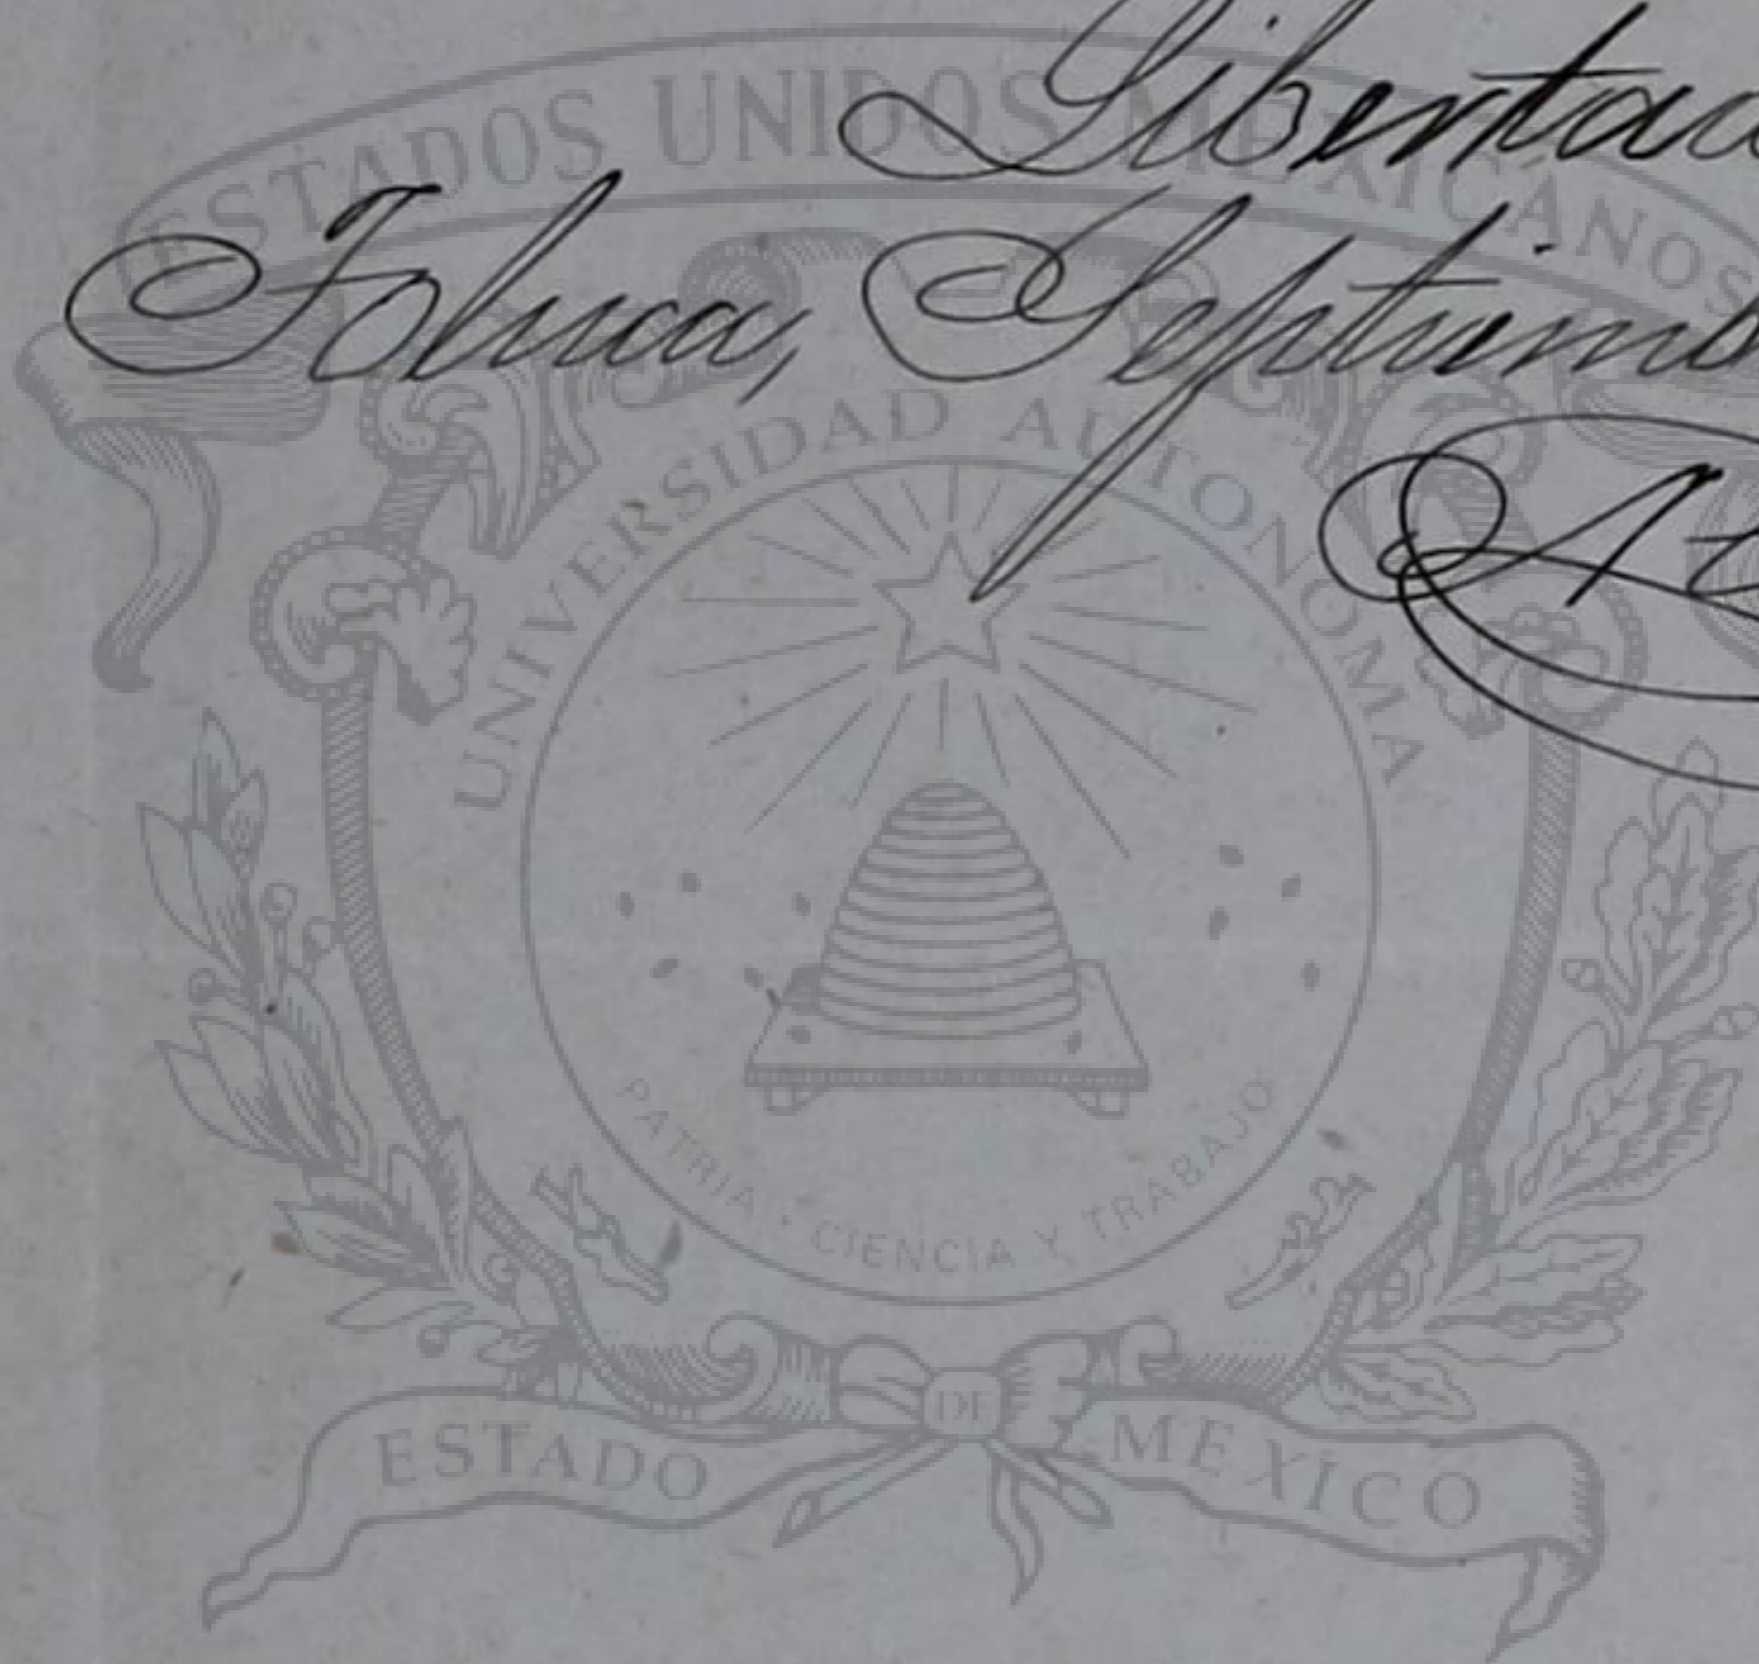 Libertad
Toluca, Septiemb
ESTADOS UNIDOS MEXICANOS
UNIVERSIDAD AUTONOMA
PATRIA · CIENCIA Y TRABAJO
ESTADO DE MEXICO